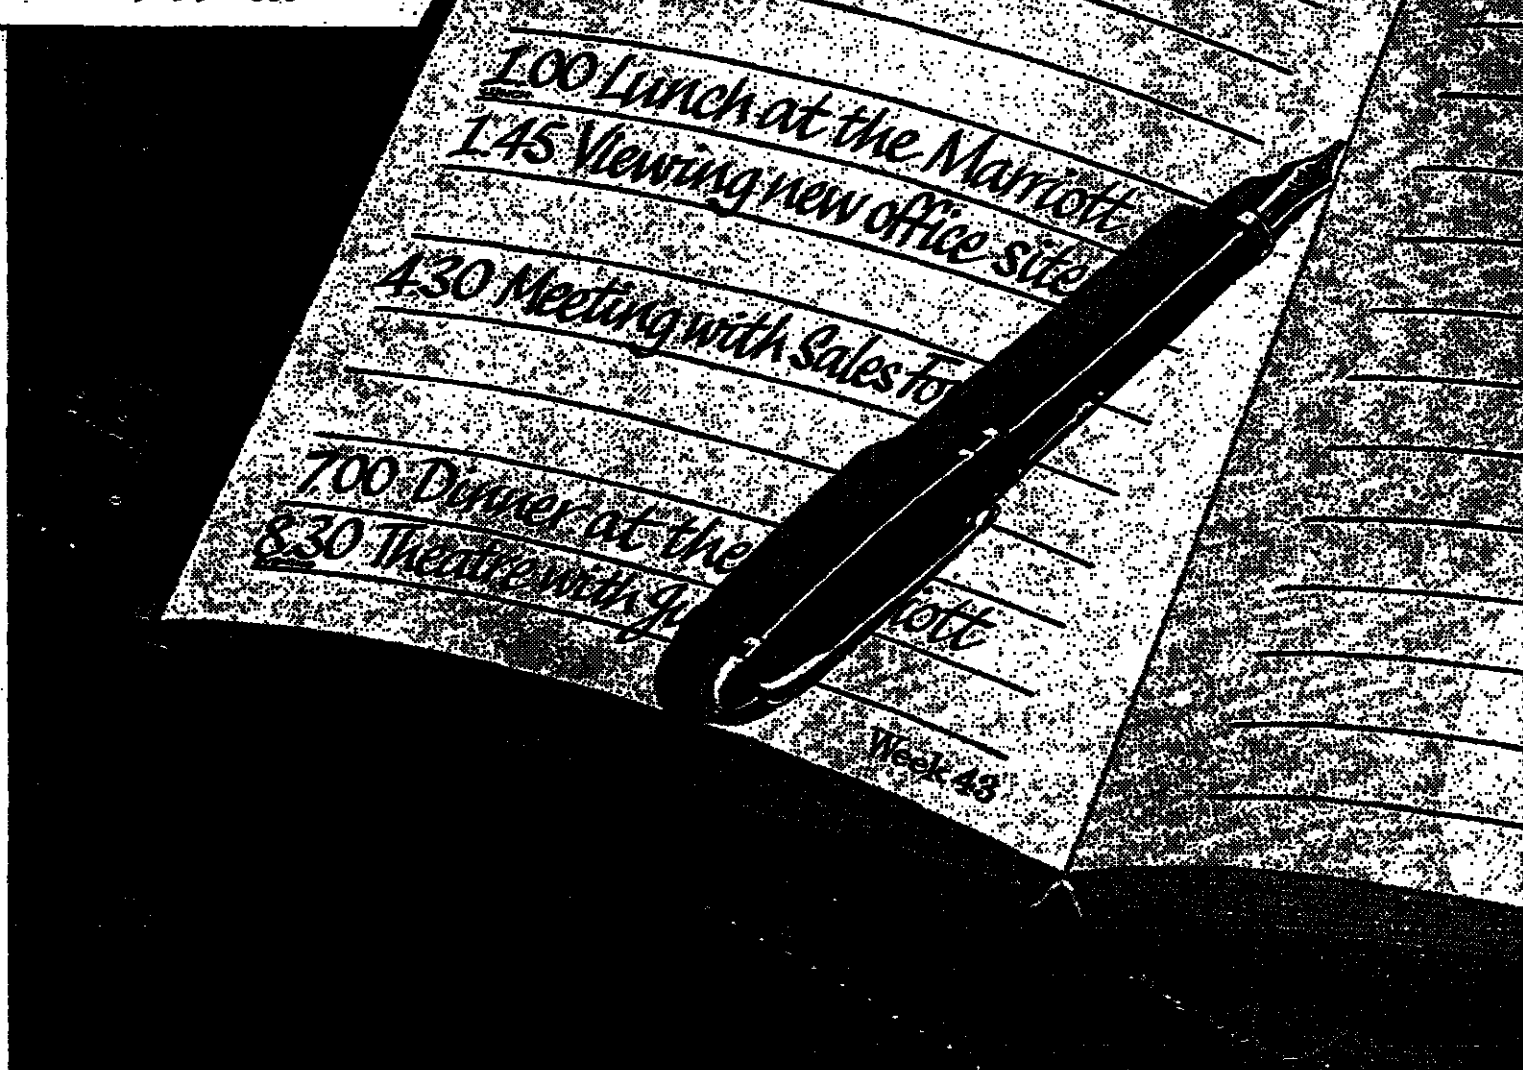 1.00 Lunch at the Marriott
1.45 Viewing new office site
4.30 Meeting with Sales
7.00 Dinner at the
8.30 Theatre with
Week 43